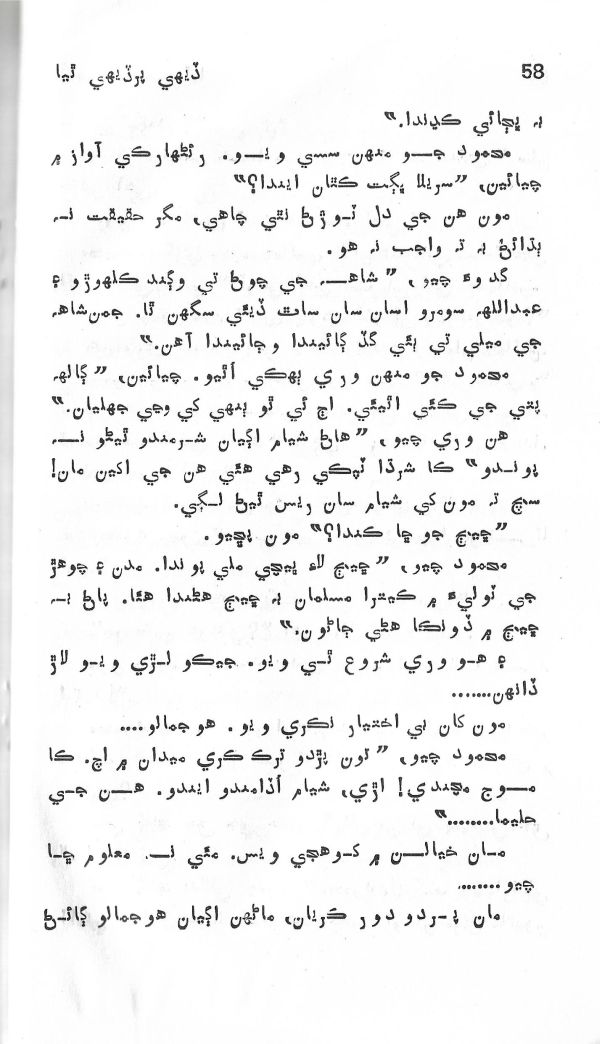 58 ڏيهي پرڏيهي ٿيا
بہ پڄائي ڪڍندا.“
محمود جو منهن سسي ويو. رئڻهارڪي آواز ۾
چيائين، ”سريلا ڀڳت ڪٿان ايندا؟“
مون هن جي دل ٽوڙڻ نٿي چاهي، مگر حقيقت نہ
ٻڌائڻ بہ تہ واجب نہ هو.
گدوءَ چيو، ”شاھ جي چوڻ تي وڳند ڪلهوڙو ۽
عبداللھ سومرو اسان سان ساٿ ڏيئي سگهن ٿا. جمن شاھ
جي ميلي تي ٻئي گڏ ڳائيندا وڄائيندا آهن.“
محمود جو منهن وري ٻهڪي اٿيو. چيائين، ”ڳالھ
پتي جي ڪئي اٿيئي. اڄ ئي ٿو ٻنهي کي وڃي جهليان.“
هن وري چيو، ”هاڻ شيام اڳيان شرمندو ٿيڻو نہ
پوندو“ ڪا شرڌا ٽپڪي رهي هئي هن جي اکين مان!
سچ تہ مون کي شيام سان ريس ٿيڻ لڳي.
”ڇيڄ جو ڇا ڪندا؟“ مون پڇيو.
محمود چيو، ”ڇيڄ لاءِ ڀيڄي ملي پوندا. مدن ۽ چوهڙ
جي ٽوليءَ ۾ ڪيترا مسلمان بہ ڇيڄ هڻندا هئا. پاڻ بہ
ڇيڄ ۾ ڏونڪا هڻي ڄاڻون.“
۽ هو وري شروع ٿي ويو. جيڪو لڙي ويو لاڙ
ڏانهن.......
مون کان بي اختيار نڪري ويو. هوجمالو....
محمود چيو، ”تون پڙدو ترڪ ڪري ميدان ۾ اچ. ڪا
موج مچندي! اڙي، شيام اُڏامندو ايندو. هن جي
حليما........“
مان خيالن ۾ کوهجي ويس. مٺي نہ معلوم ڇا
چيو........
مان پردو دور ڪريان، ماڻهن اڳيان هوجمالو ڳائڻ